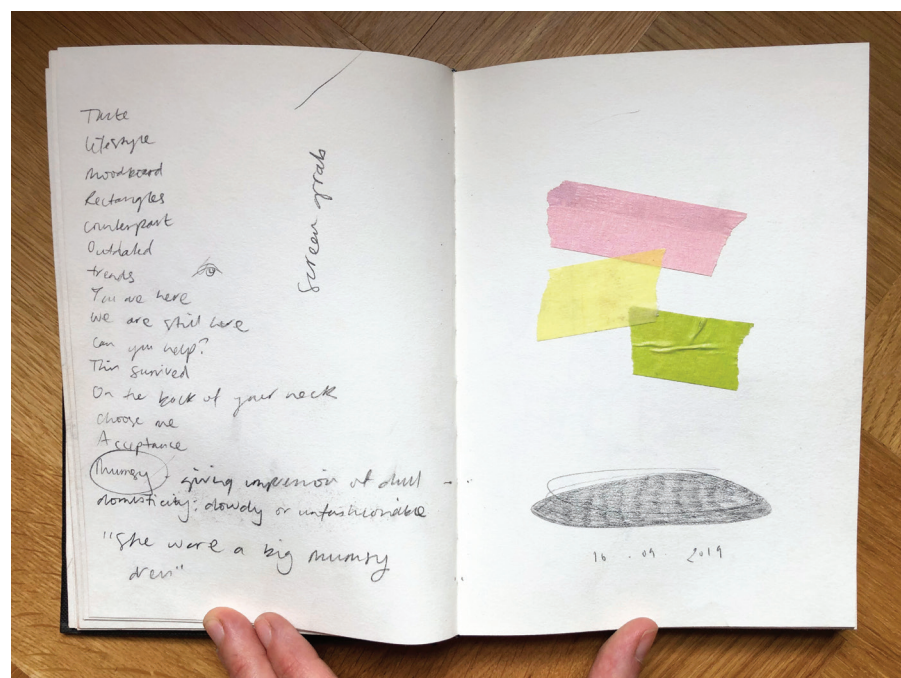 Taste
lifestyle
moodboard
Rectangles
counterpart
Outdated
trends
You are here
We are still here
Can you help?
This survived
On the back of your neck
choose me
Acceptance
Mumsy - giving impression of dull
domesticity: dowdy or unfashionable
"She wore a big mumsy
dress"
Screen grab
16 . 09 2019